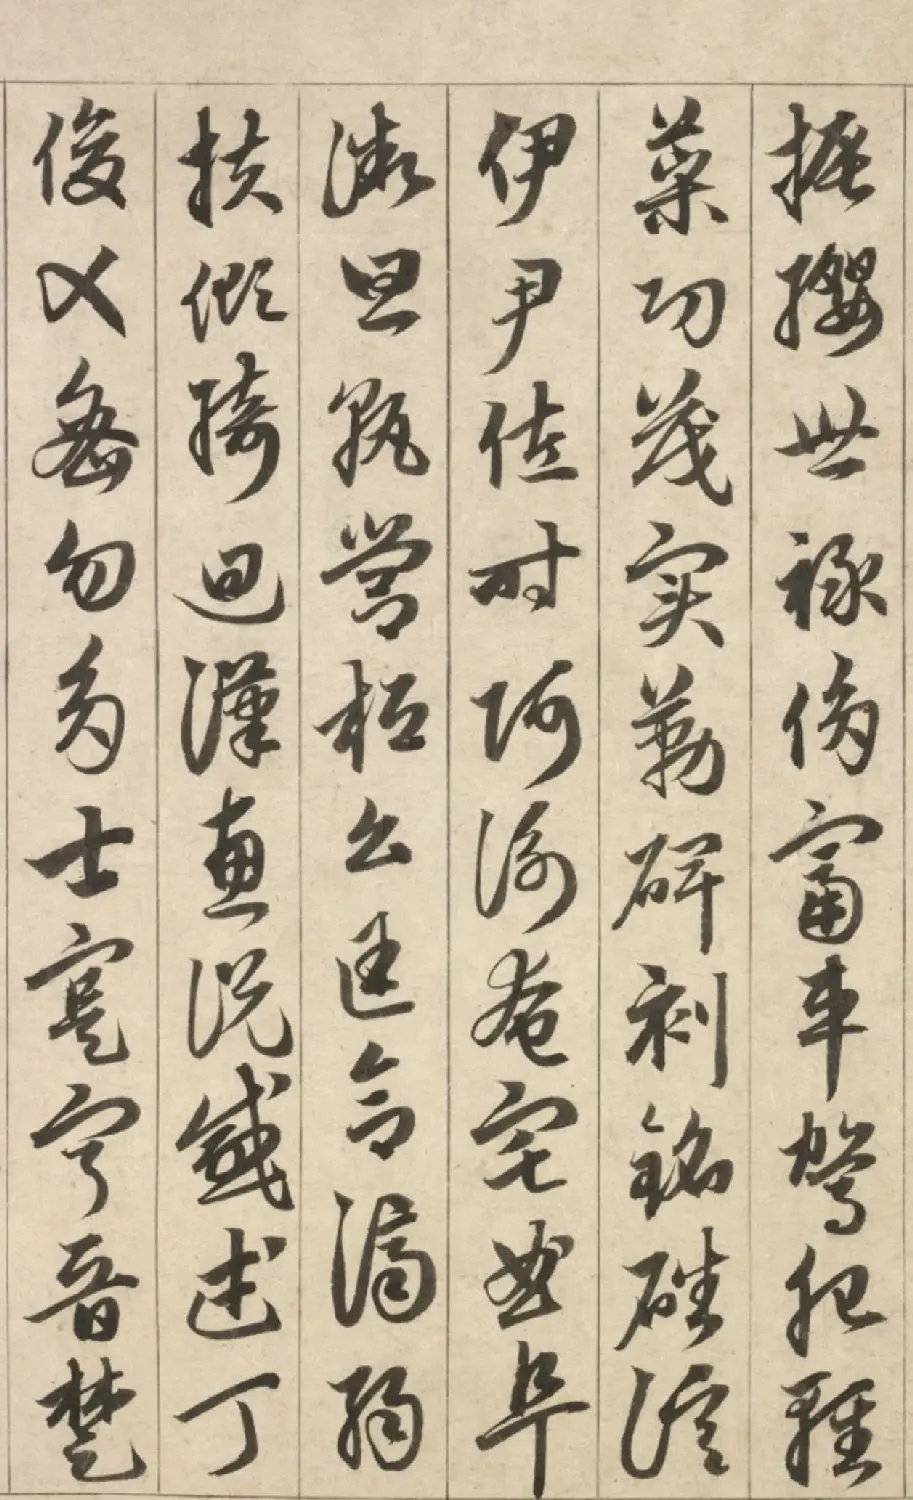 振纓世祿侈富車駕肥輕
策功茂實勒碑刻銘磻溪
伊尹佐時阿衡奄宅曲阜
微旦孰營桓公匡合濟弱
扶傾綺迴漢惠說感武丁
俊乂密勿多士寔寧晉楚